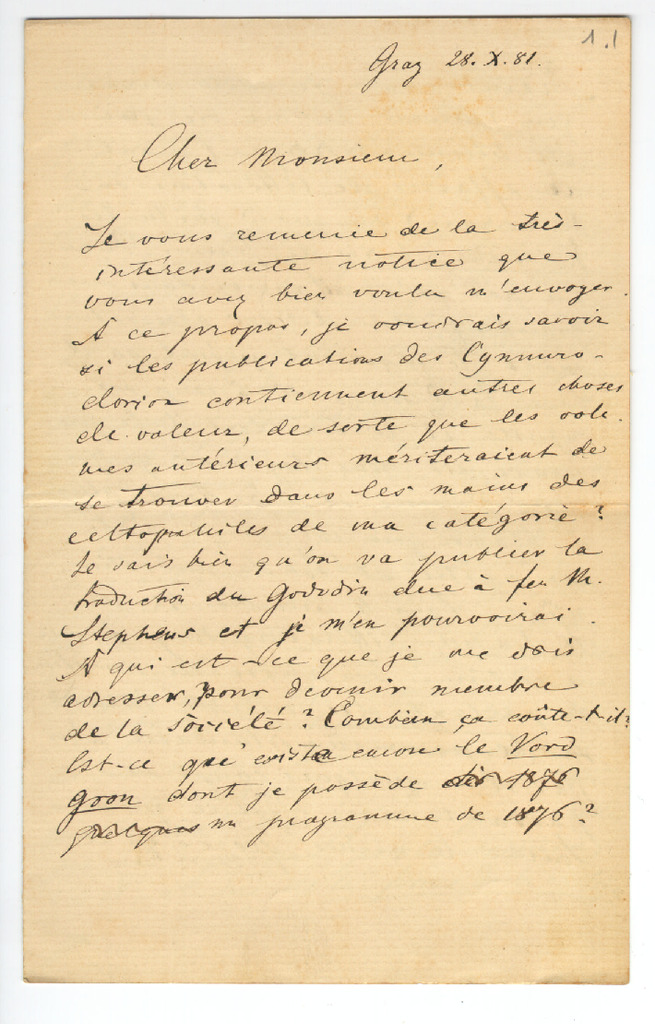 1.1
Graz 28.X.81.
Cher Monsieur,
Je vous remercie de la très-
intéressante notice que
vous avez bien voulu m'envoyer.
A ce propos, je voudrais savoir
si les publications des Cymmro-
dorion contiennent autres choses
de valeur, de sorte que les volu-
mes antérieurs mériteraient de
se trouver dans les mains des
celtophiles de ma catégorie?
Je sais bien qu'on va publier la
traduction du Gododin due à feu M.
Stephens et je m'en pourvoirai.
A qui est-ce que je me dois
adresser, pour devenir membre
de la société? Combien ça coûte-t-il?
Est-ce que existe encore le Vord
gron dont je possède 1876
quelques un programme de 1876?